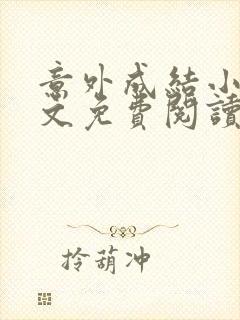 意外成結小
文免費閱讀
拎葫冲